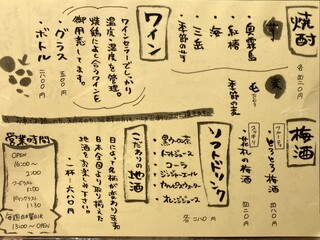 焼酎
各四二〇円
芋
・奥霧島
・紅椿
・海
・三岳
・季節のイモ
麦
季節の麦
ワイン
ワインセラーでしっかり
温度・湿度を管理。
焼鶏によく合うワインを
御用意してます。
・グラス 五〇〇円
・ボトル 二六〇〇円
梅酒
フルーティー
とろとろ梅酒 四二〇円
スッキリ
梅酒 四二〇円
ソフトドリンク
・黒ウーロン茶
・トマトジュース
・コーラ
・ジンジャーエール
・カルピスウォーター
・オレンジジュース
各二一〇円
こだわりの地酒
日によって銘柄が変わります。
日本全国より取り揃えた
地酒をお楽しみ下さい。
・一杯 六〇〇円
営業時間
OPEN
16:00〜
2:00
フードラスト
1:00
ドリンクラスト
1:30
毎週日曜日は
13:00〜OPEN